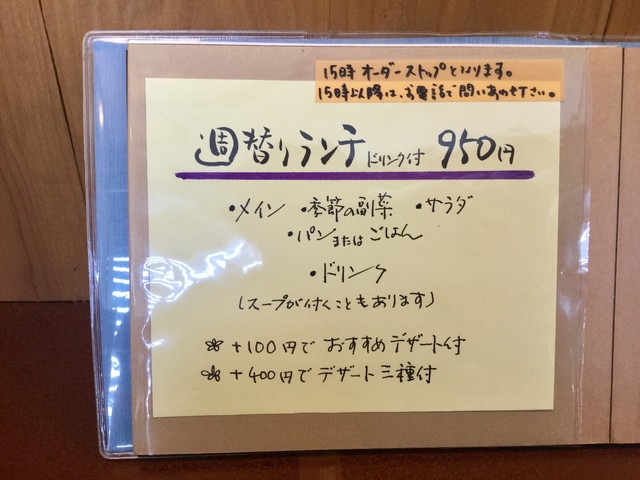 15時オーダーストップとなります。
15時以降は、お電話で問いあわせ下さい。
週替りランチ ドリンク付 950円
・メイン ・季節の副菜 ・サラダ
・パンまたはごはん
・ドリンク
(スープが付くこともあります)
+100円で おすすめデザート付
+400円で デザート三種付